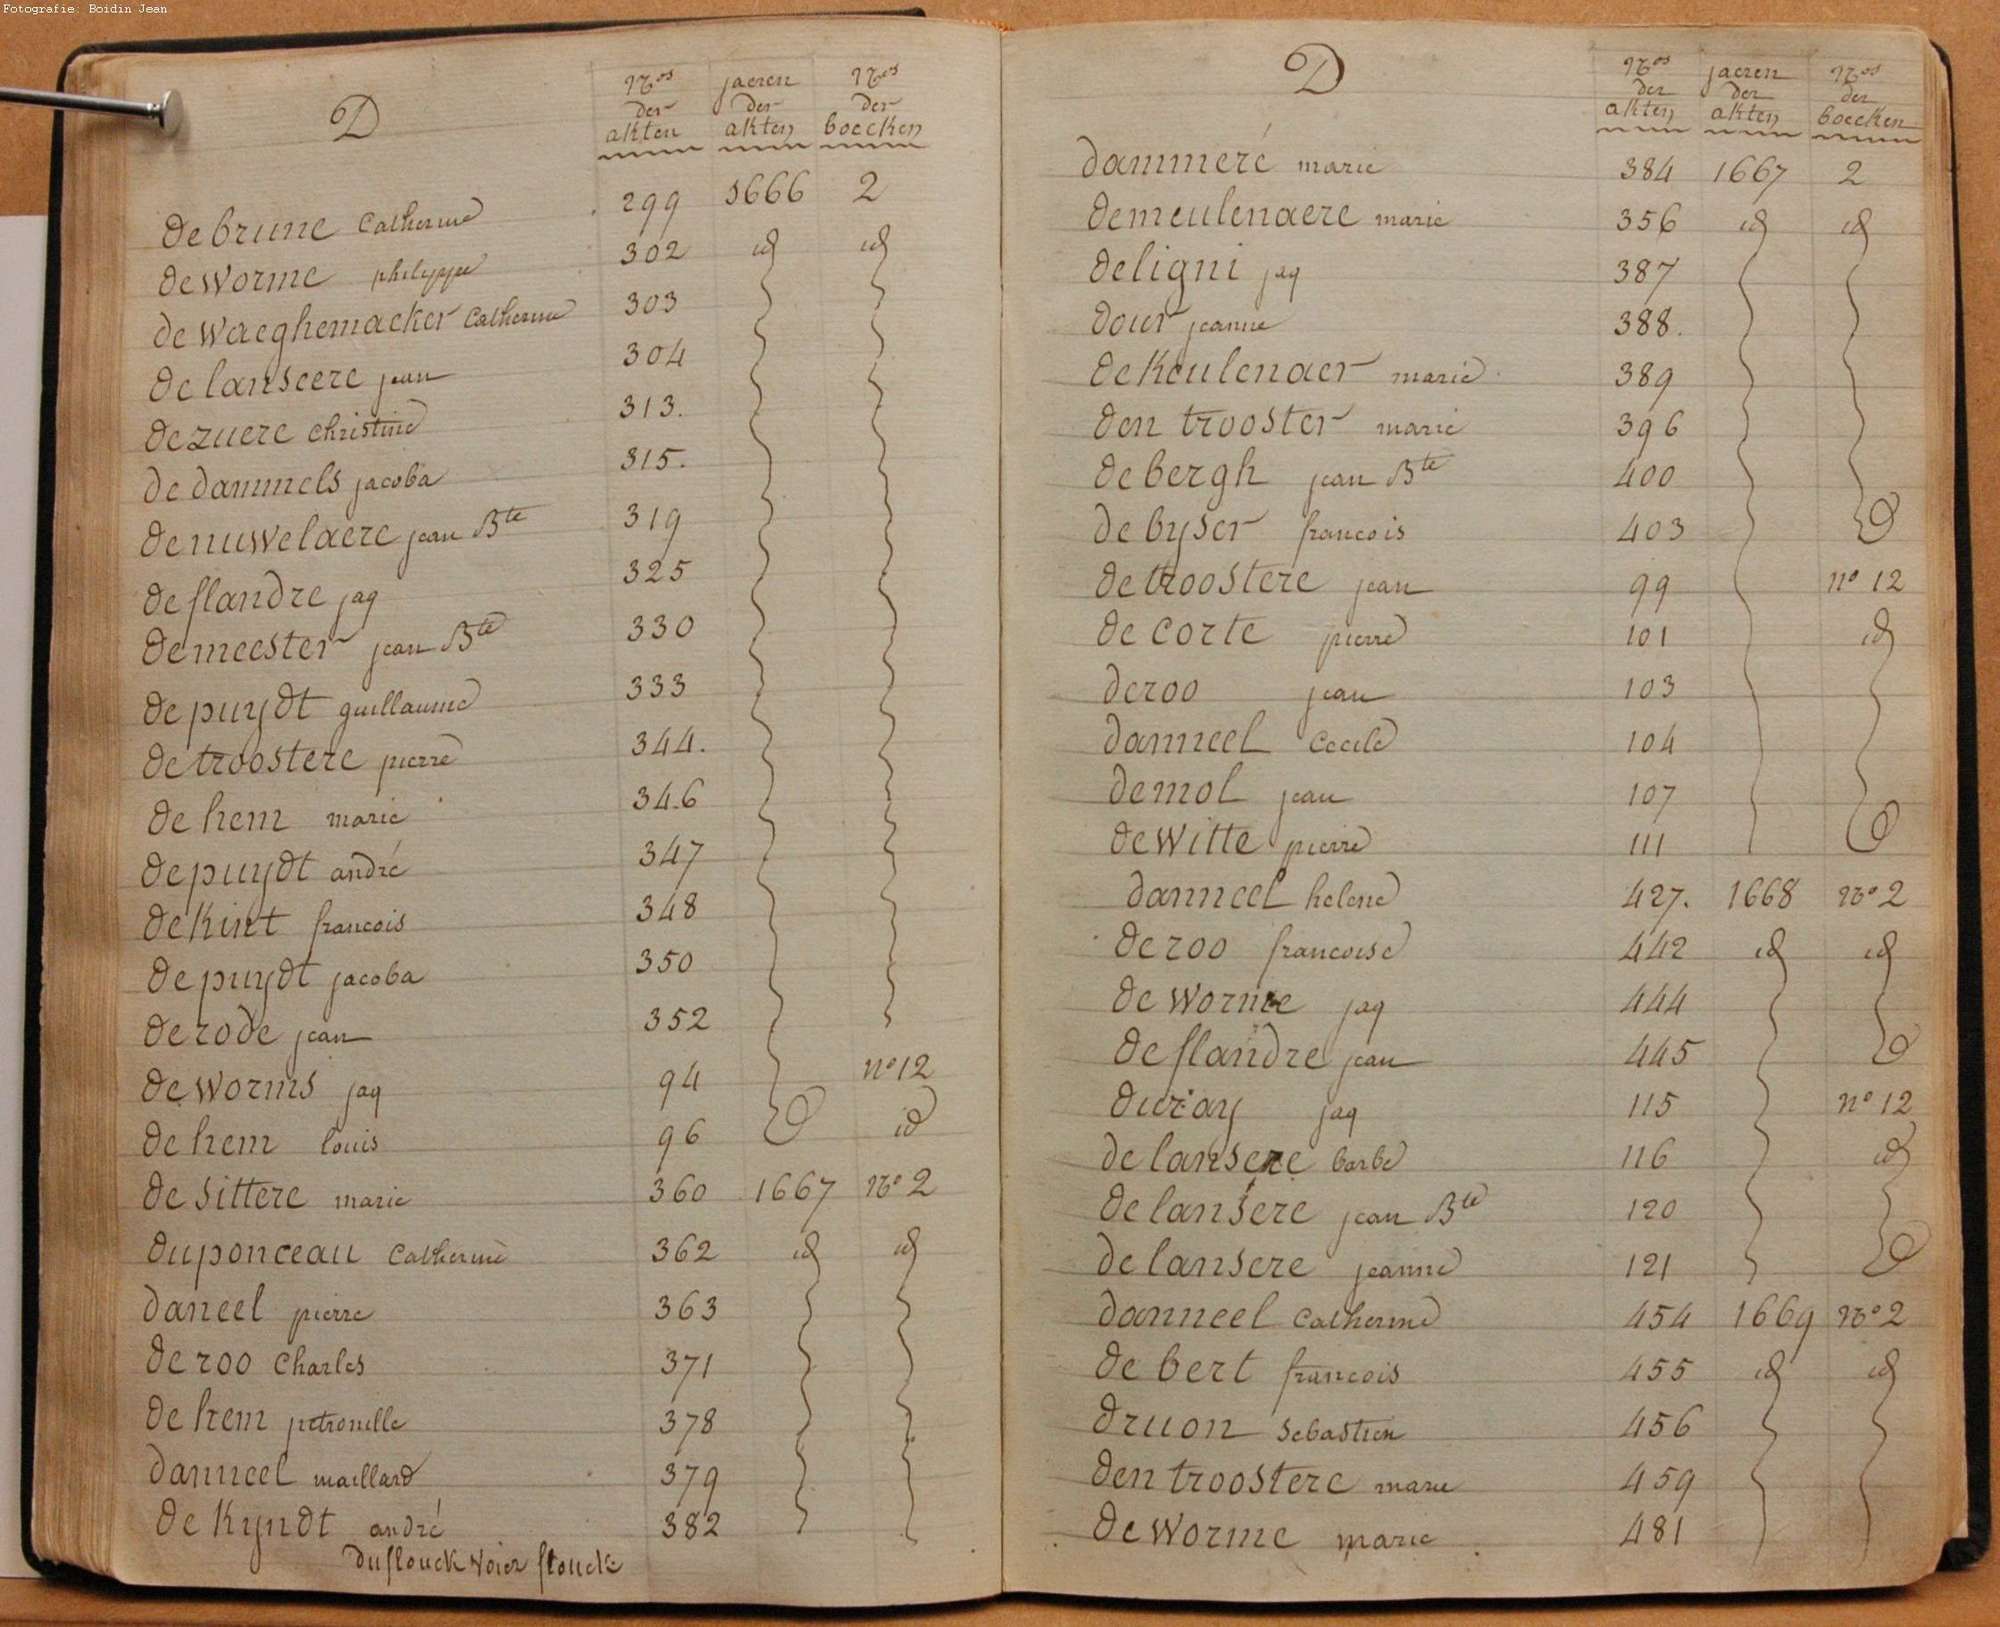 Fotografie: Boidin Jean
D
Nos der akten jaeren der akten Nos der boecken
debrune Catherine 299 1666 2
deworme philippe 302 id id
de waeghemacker Catherine 303
de lanscere jean 304
dezuere christine 313.
de dammels jacoba 315.
denuwelaere jean Bte 319
deflandre jaq 325
demeester jean Bte 330
depuydt guillaume 333
detroostere pierre 344.
de hem marie 346
depuydt andré 347
dekint francois 348
depuydt jacoba 350
derode jean 352
de worms jaq 94 no 12
de hem louis 96 id
de sittere marie 360 1667 No 2
duponceau Catherine 362 id id
daneel pierre 363
de roo Charles 371
de hem petronille 378
danneel maillard 379
de Kyndt andré 382
duflouck voier flouck
D
Nos der akten jaeren der akten Nos der boecken
dammeré marie 384 1667 2
demeulenaere marie 356 id id
deligni jaq 387
dour jeanne 388.
deKeulenaer marie 389
den trooster marie 396
debergh jean Bte 400
debyser francois 403
detroostere jean 99 no 12
de corte pierre 101 id
deroo jean 103
danneel Cecile 104
demol jean 107
dewitte pierre 111
danneel helene 427. 1668 No 2
deroo francoise 442 id id
de worme jaq 444
deflandre jean 445
duray jaq 115 no 12
de lansere barbe 116 id
delansere jean Bte 120
delansere jeanne 121
danneel Catherine 454 1669 No 2
de bert francois 455 id id
druon Sebastien 456
den troostere marie 459
de worme marie 481